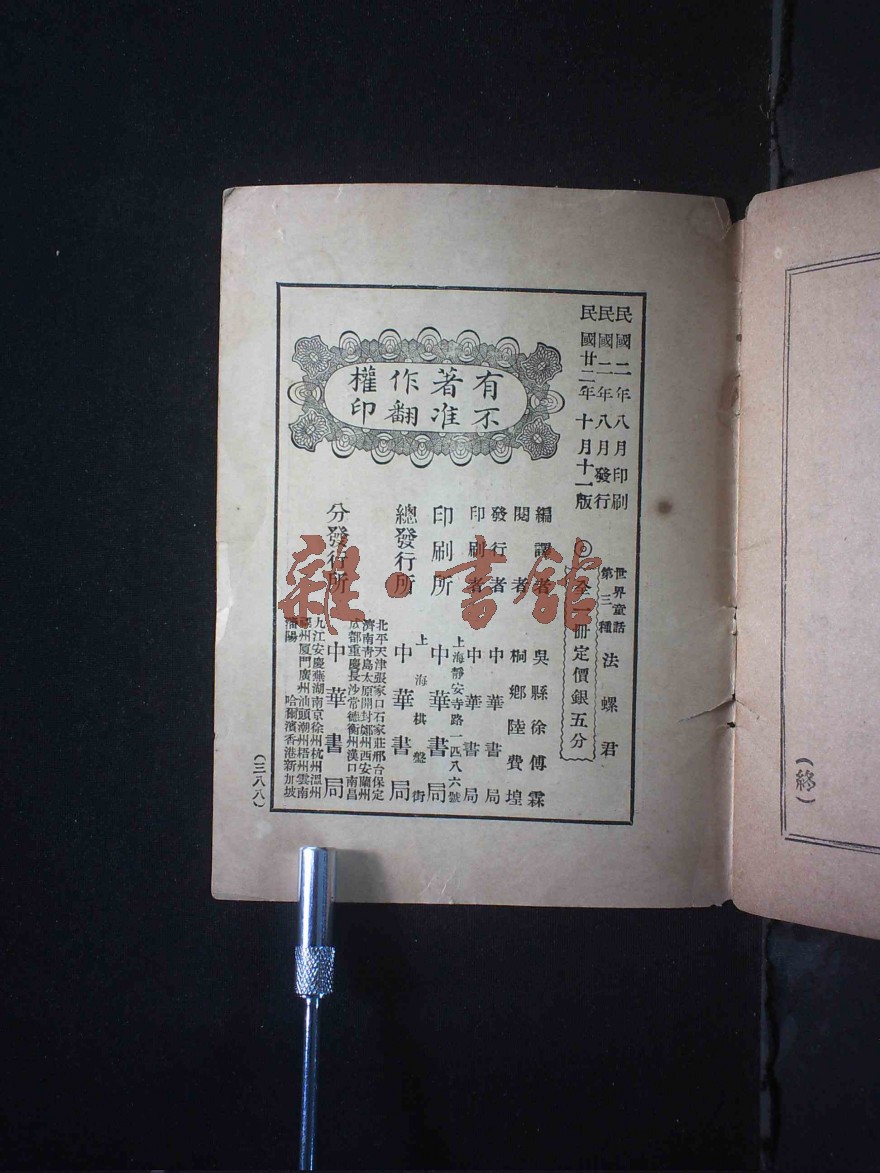 民國二年八月印刷
民國二年八月發行
民國廿二年十月十一版
世界童話
第三種
法螺君
全一冊定價銀五分
有著作權
不准翻印
編譯者 吳縣徐傅霖
閱者 桐鄉陸費堭
發行者 中華書局
印刷者 中華書局
上海靜安寺路一四八六號
印刷所 中華書局
上海棋盤街
總發行所 中華書局
北平天津張家口石家莊邢台保定
濟南青島太原開封鄭州西安蘭州
成都重慶長沙常德衡州漢口南昌
分發行所 中華書局
九江安慶蕪湖南京徐州杭州溫州
福州廈門廣州汕頭潮州梧州雲南
瀋陽 哈爾濱香港新加坡
(三八八)
(終)
雜·書館